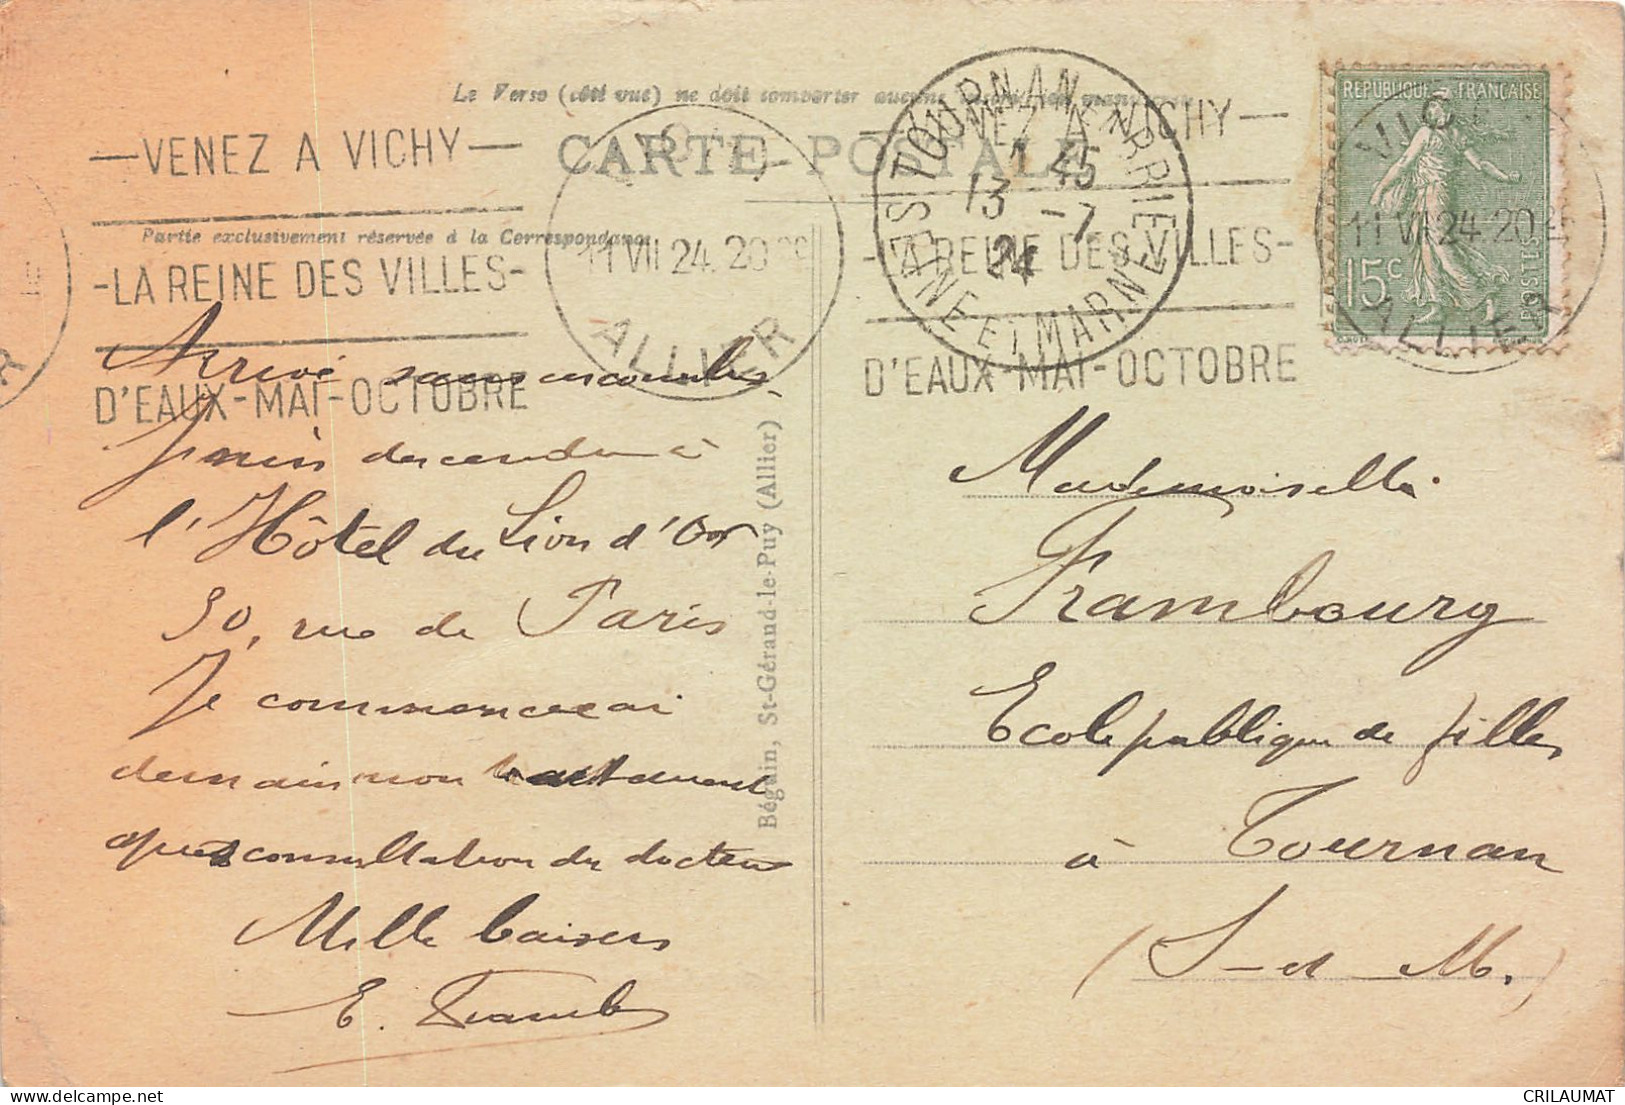 Le Verso (côté vue) ne doit comporter aucune inscription manuscrite
CARTE POSTALE
Partie exclusivement réservée à la Correspondance
—VENEZ A VICHY—
-LA REINE DES VILLES-
D'EAUX-MAI-OCTOBRE
11 VII 24. 20
ALLIER
—VENEZ A VICHY—
-LA REINE DES VILLES-
D'EAUX-MAI-OCTOBRE
TOURNAN EN BRIE
1 45
13 -7
24
SEINE ET MARNE
REPUBLIQUE FRANÇAISE
15c
POSTES
VICHY
11 VII 24. 20
ALLIER
Arrivé sans encombre
Je suis descendu à
l'Hôtel du Lion d'Or
30, rue de Paris
Je commencerai
demain mon traitement
après consultation du docteur
Mille baisers
E. Framb
Béguin, St-Gérand-le-Puy (Allier)
Mademoiselle
Frambourg
Ecole publique de filles
à Tournan
(S-et-M.)
CRILAUMAT